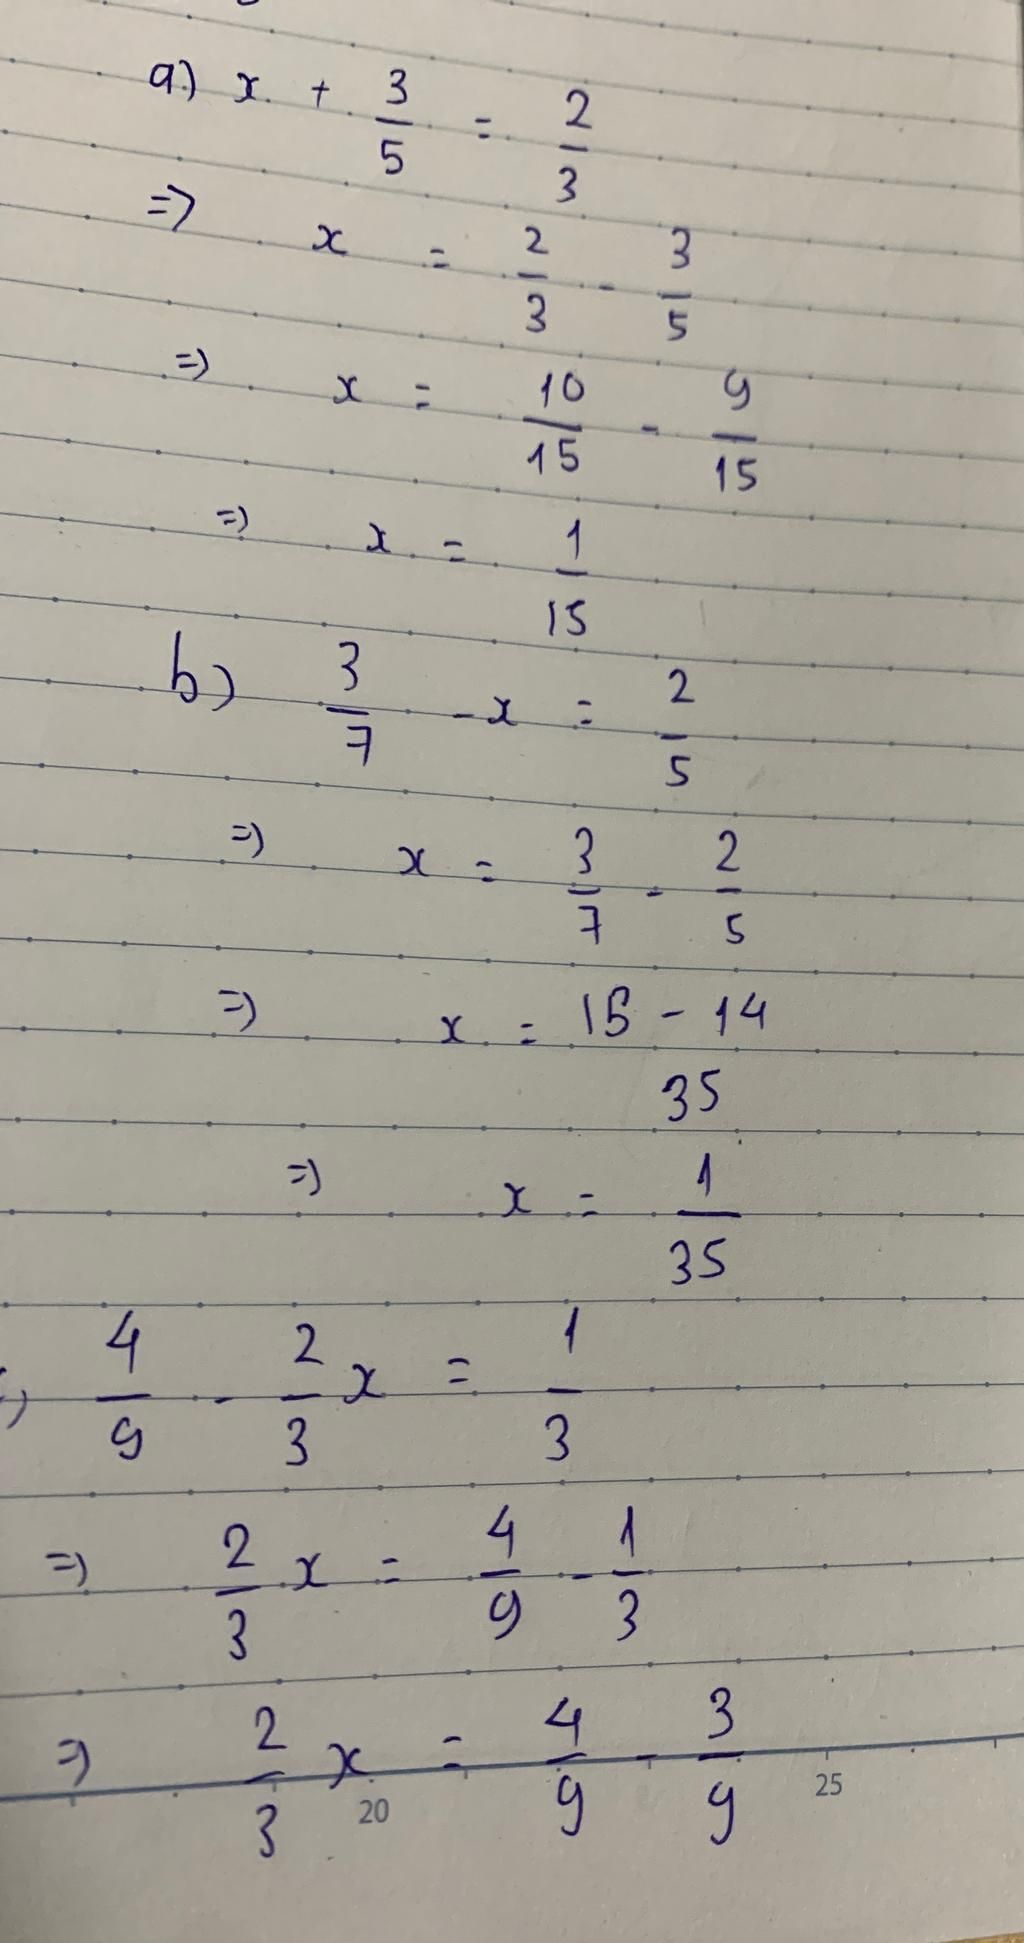 a) x + 3/5 = 2/3
=> x = 2/3 - 3/5
=> x = 10/15 - 9/15
=> x = 1/15
b) 3/7 - x = 2/5
=> x = 3/7 - 2/5
=> x = 15 - 14
35
=> x = 1/35
) 4/9 - 2/3 x = 1/3
=> 2/3 x = 4/9 - 1/3
=> 2/3 x = 4/9 - 3/9
20 25